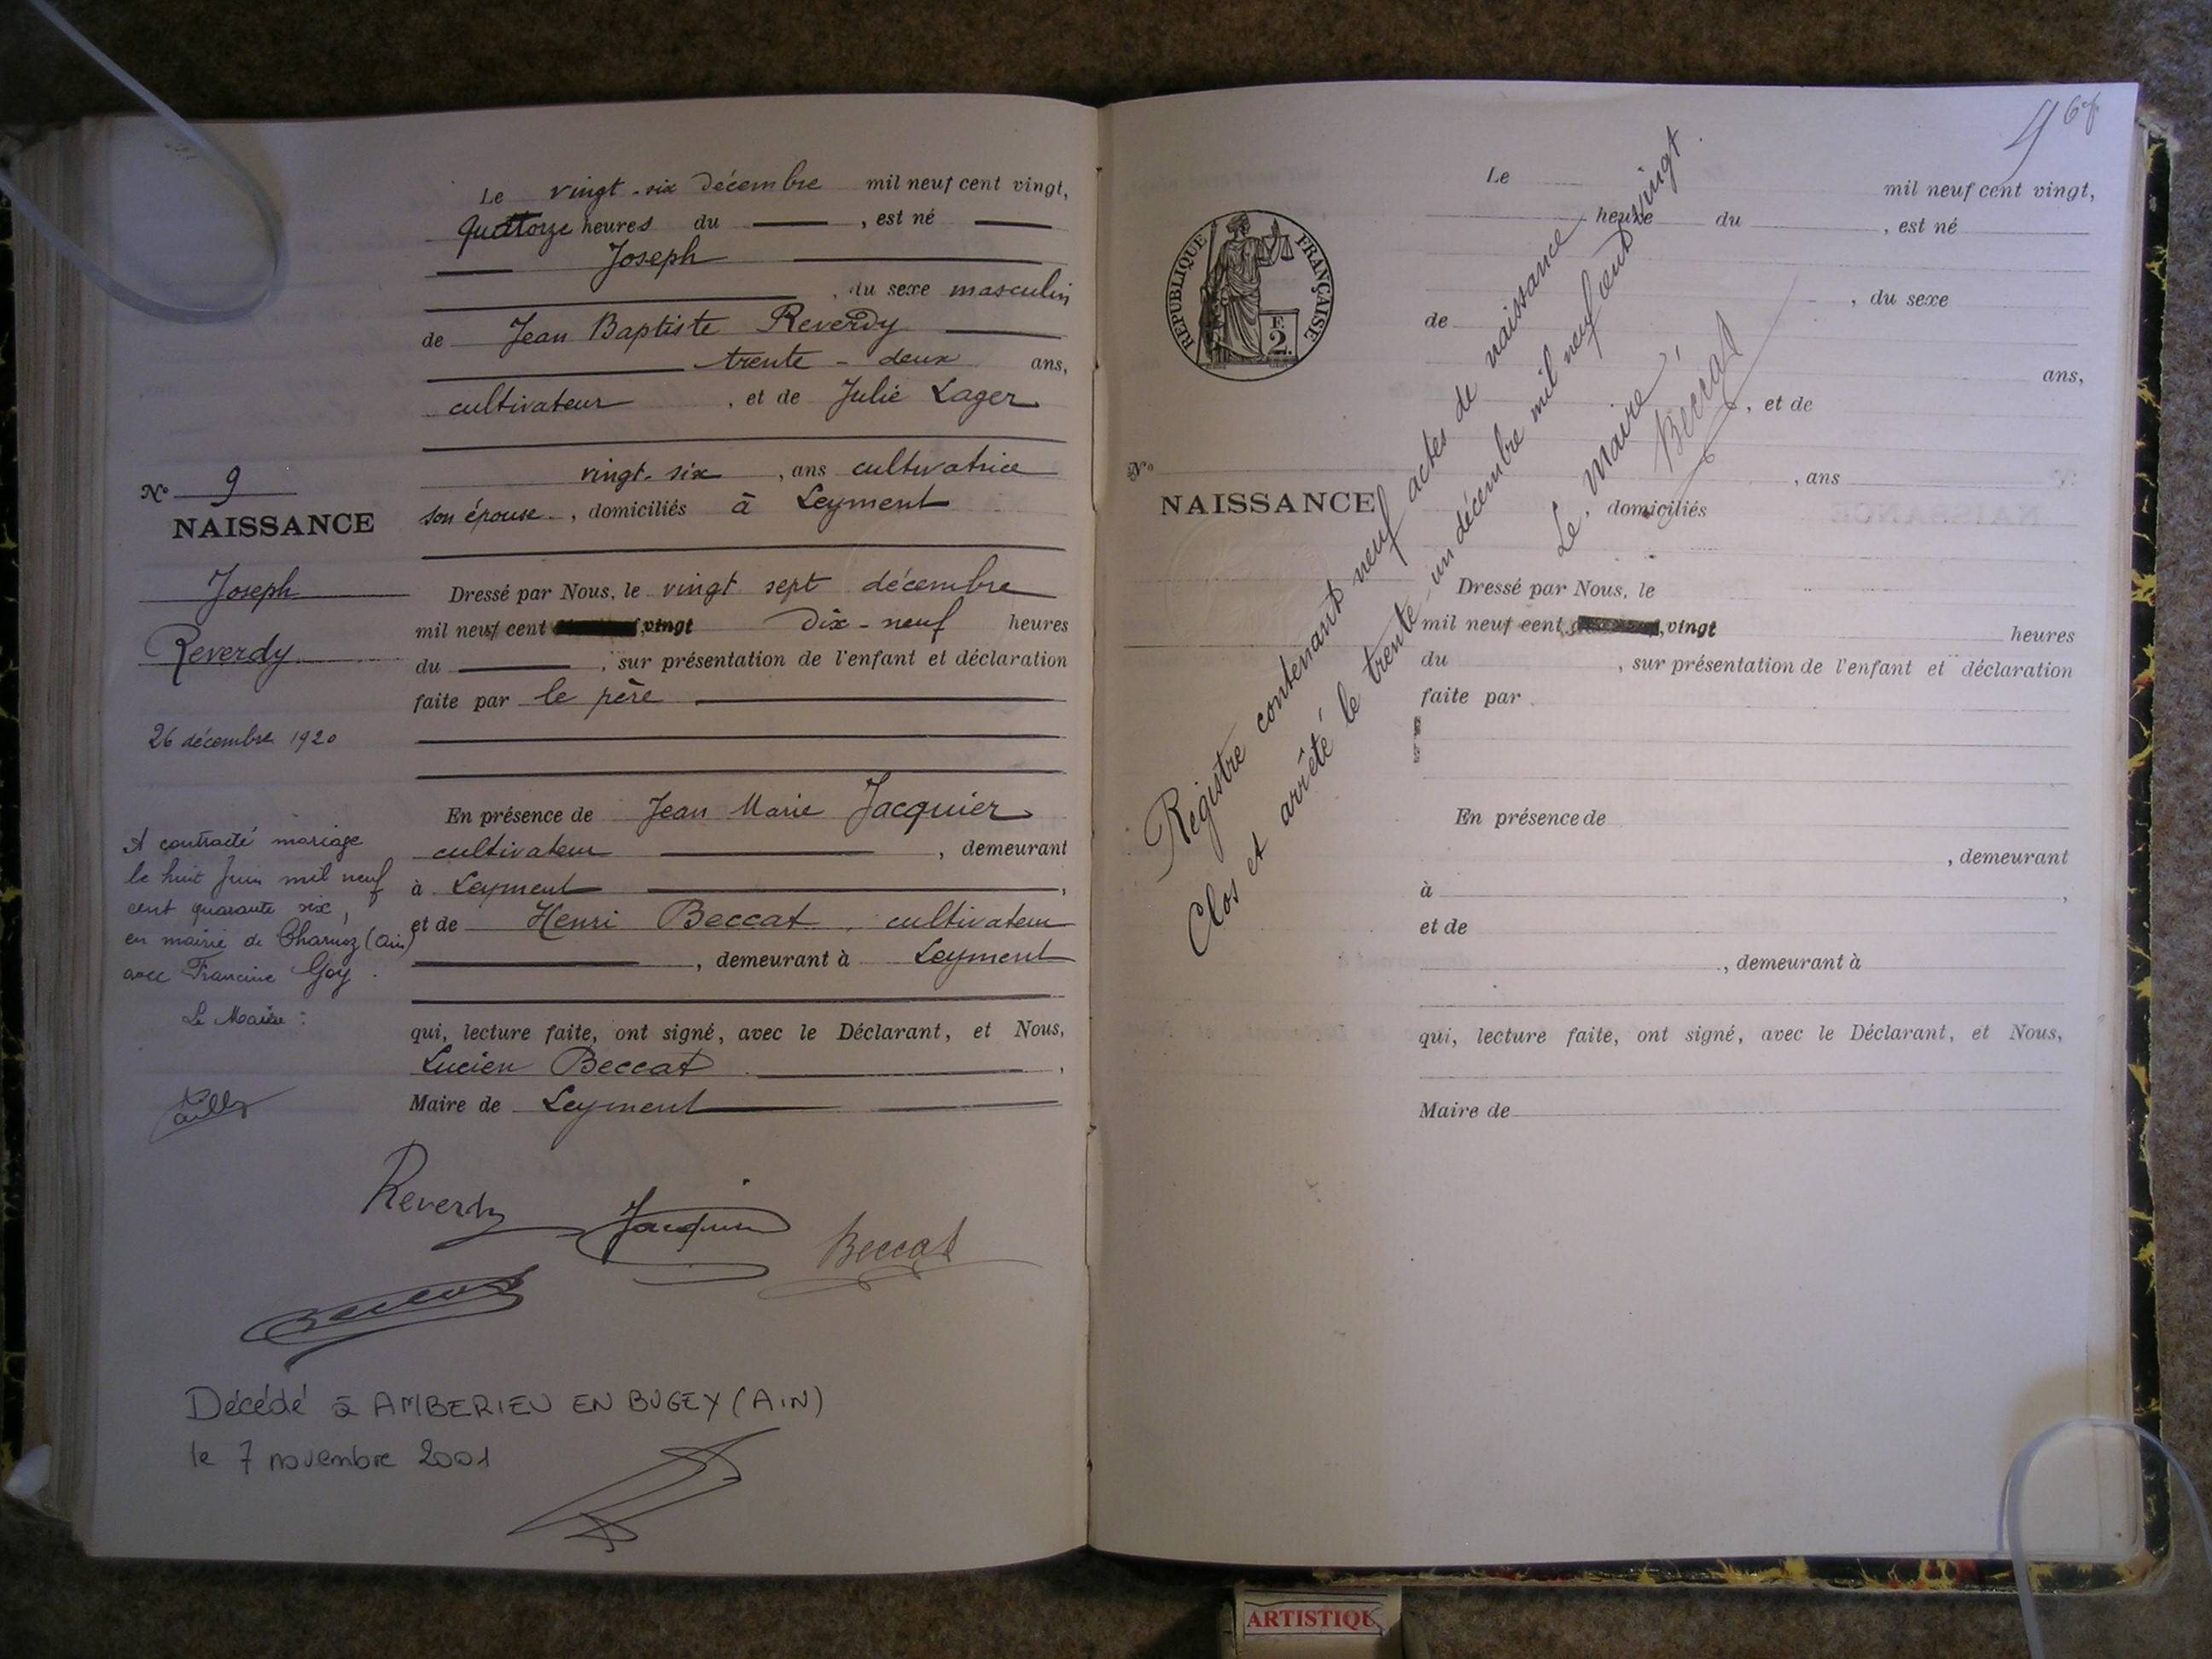 Le vingt-six décembre mil neuf cent vingt,
Quatorze heures du , est né
Joseph
, du sexe masculin
de Jean Baptiste Reverdy
trente-deux ans,
cultivateur , et de Julie Lager
vingt-six , ans cultivatrice
son épouse , domiciliés à Leyment
Nº 9
NAISSANCE
Joseph
Reverdy
26 décembre 1920
Dressé par Nous, le vingt sept décembre
mil neuf cent vingt Dix-neuf heures
du , sur présentation de l'enfant et déclaration
faite par le père
En présence de Jean Marie Jacquier
cultivateur , demeurant
à Leyment ,
et de Henri Beccat, cultivateur
, demeurant à Leyment
qui, lecture faite, ont signé, avec le Déclarant, et Nous,
Lucien Beccat ,
Maire de Leyment
A contracté mariage
le huit Juin mil neuf
cent quarante six,
en mairie de Charnoz (Ain)
avec Francine Goy.
Le Maire :
Reverdy
Jacquier
Beccat
Décédé à AMBERIEU EN BUGEY (AIN)
le 7 novembre 2001
REPUBLIQUE FRANÇAISE
F.
2.
Le mil neuf cent vingt,
heure du , est né
, du sexe
de
ans,
, et de
Nº
NAISSANCE
, ans
domiciliés
Dressé par Nous, le
mil neuf cent ,vingt heures
du , sur présentation de l'enfant et déclaration
faite par
En présence de
, demeurant
à ,
et de
, demeurant à
qui, lecture faite, ont signé, avec le Déclarant, et Nous,
Maire de
Registre contenant neuf actes de naissance
Clos et arrêté le trente-un décembre mil neuf cent vingt.
Le Maire,
Beccat
ARTISTIQUE